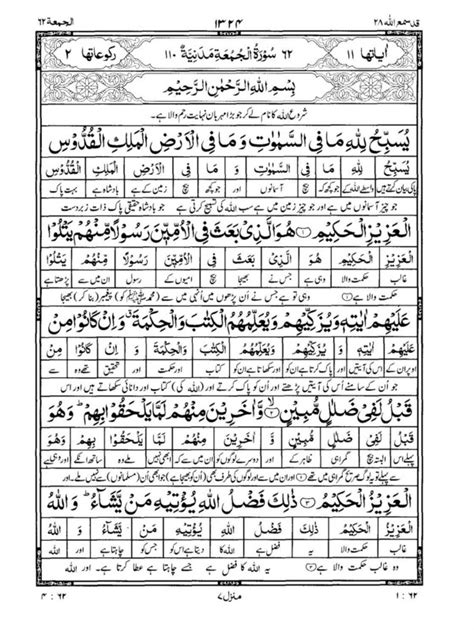 قد سمع الله ٢٨ ١٣٢٤ الجمعة ٦٢
اٰیاتھا ١١ ٦٢ سُوْرَةُ الْجُمُعَةِ مَدَنِیَّةٌ ١١٠ رکوعاتھا ٢
بِسْمِ اللّٰهِ الرَّحْمٰنِ الرَّحِيْمِ
شروع اللہ کا نام لے کر جو بڑا مہربان نہایت رحم والا ہے۔
يُسَبِّحُ لِلّٰهِ مَا فِى السَّمٰوٰتِ وَمَا فِى الْاَرْضِ الْمَلِكِ الْقُدُّوْسِ
يُسَبِّحُ لِلّٰهِ مَا فِى السَّمٰوٰتِ وَ مَا فِى الْاَرْضِ الْمَلِكِ الْقُدُّوْسِ
پاکی بیان کرتے ہیں واسطے اللہ کے جو کچھ کہ بیچ آسمانوں اور جو کچھ بیچ زمین کے ہے بادشاہ ہے بہت پاک
جو چیز آسمانوں میں ہے اور جو چیز زمین میں ہے سب اللہ کی تسبیح کرتی ہے جو بادشاہ حقیقی پاک ذات زبردست
الْعَزِيْزِ الْحَكِيْمِ ١ هُوَ الَّذِىْ بَعَثَ فِى الْاُمِّيّٖنَ رَسُوْلًا مِّنْهُمْ يَتْلُوْا
الْعَزِيْزِ الْحَكِيْمِ هُوَ الَّذِىْ بَعَثَ فِى الْاُمِّيّٖنَ رَسُوْلًا مِّنْهُمْ يَتْلُوْا
غالب حکمت والا وہی ہے جس نے بھیجا بیچ امیوں کے رسول ان میں سے پڑھتا ہے
حکمت والا ہے ١ وہی تو ہے جس نے اَن پڑھوں میں اُنہی میں سے (محمدؐ کو) پیغمبر (بنا کر) بھیجا
عَلَيْهِمْ اٰيٰتِهٖ وَيُزَكِّيْهِمْ وَيُعَلِّمُهُمُ الْكِتٰبَ وَالْحِكْمَةَ وَاِنْ كَانُوْا مِنْ
عَلَيْهِمْ اٰيٰتِهٖ وَ يُزَكِّيْهِمْ وَيُعَلِّمُهُمُ الْكِتٰبَ وَالْحِكْمَةَ وَ اِنْ كَانُوْا مِنْ
اوپر ان کے اس کی آیتیں اور پاک کرتا ہے ان کو اور سکھاتا ہے ان کو کتاب اور حکمت اور تحقیق تھے وہ سے
جو اُن کے سامنے اُس کی آیتیں پڑھتے اور اُن کو پاک کرتے اور (اللہ کی) کتاب اور دانائی سکھاتے ہیں اور اس
قَبْلُ لَفِىْ ضَلٰلٍ مُّبِيْنٍ ٢ وَّاٰخَرِيْنَ مِنْهُمْ لَمَّا يَلْحَقُوْا بِهِمْ وَهُوَ
قَبْلُ لَفِىْ ضَلٰلٍ مُّبِيْنٍ وَّ اٰخَرِيْنَ مِنْهُمْ لَمَّا يَلْحَقُوْا بِهِمْ وَهُوَ
پہلے اس البتہ بیچ گمراہی ظاہر کے اور دوسرے لوگوں کو ان میں سے کہ ابھی نہیں ملے وہ ساتھ ان کے اور وہی ہے
سے پہلے تو یہ لوگ صریح گمراہی میں تھے ٢ اور ان میں سے اور لوگوں کی طرف بھی (اُن کو بھیجا ہے) جو ابھی اُن (مسلمانوں) سے نہیں ملے۔ اور
الْعَزِيْزُ الْحَكِيْمُ ٣ ذٰلِكَ فَضْلُ اللّٰهِ يُؤْتِيْهِ مَنْ يَّشَآءُ وَاللّٰهُ
الْعَزِيْزُ الْحَكِيْمُ ذٰلِكَ فَضْلُ اللّٰهِ يُؤْتِيْهِ مَنْ يَّشَآءُ وَ اللّٰهُ
غالب حکمت والا یہ فضل ہے اللہ کا دیتا ہے اس کو جس کو چاہتا ہے اور اللہ
وہ غالب حکمت والا ہے ٣ یہ اللہ کا فضل ہے جسے چاہتا ہے عطا کرتا ہے۔ اور اللہ
٦٢ : ١ منزل ٧ ٦٢ : ٤